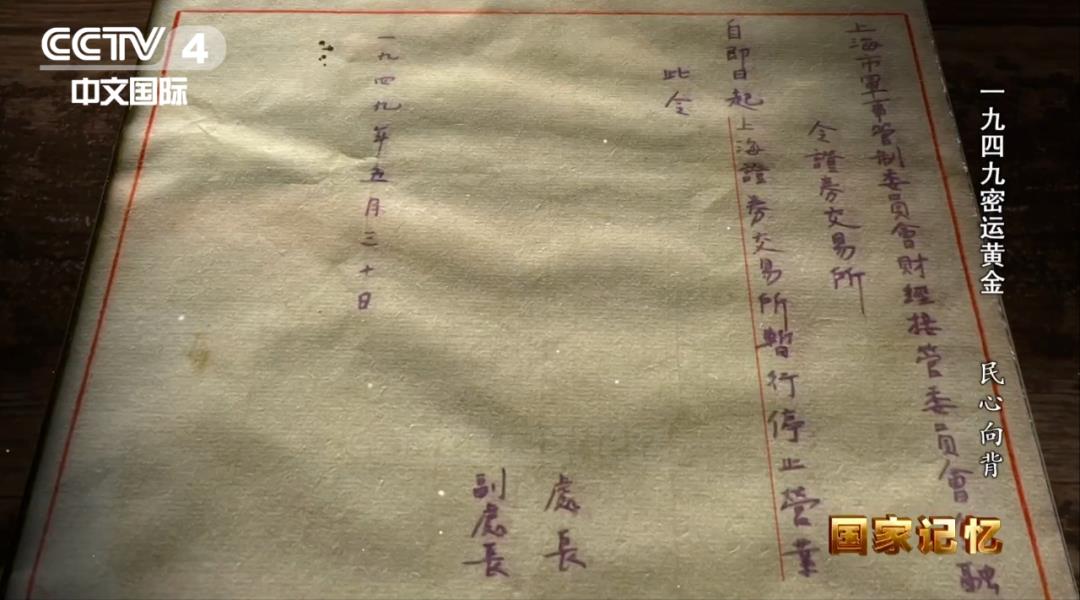 CCTV 4
中文国际
一九四九密运黄金
民心向背
上海市軍事管制委員會財經接管委員會
融
令證券交易所
自即日起上海證券交易所暫行停止營業
此令
處長
副處長
一九四九年五月三十日
国家记忆